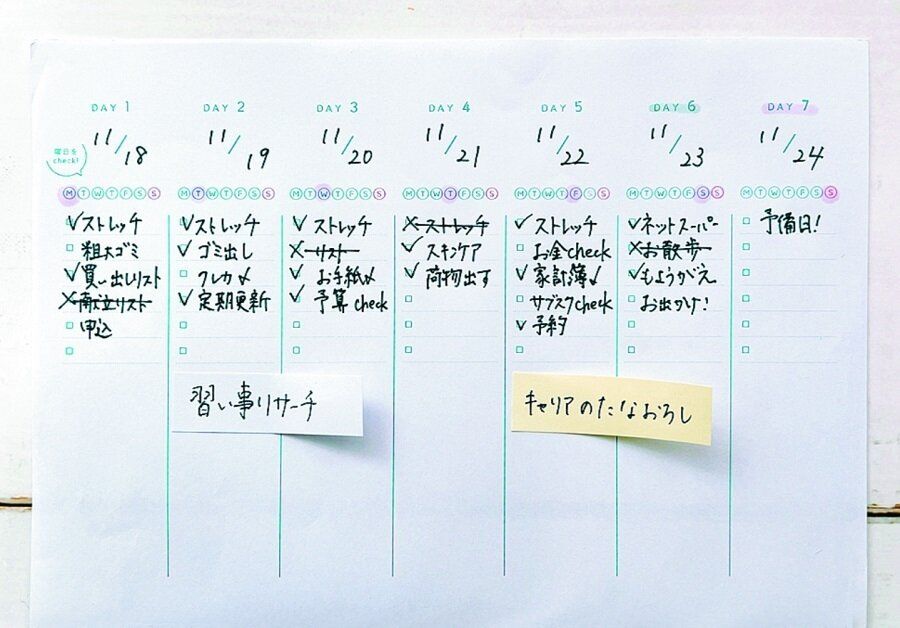 DAY 1
DAY 2
DAY 3
DAY 4
DAY 5
DAY 6
DAY 7
曜日を
check!
11/18
11/19
11/20
11/21
11/22
11/23
11/24
M T W T F S S
M T W T F S S
M T W T F S S
M T W T F S S
M T W T F S S
M T W T F S S
M T W T F S S
ストレッチ
粗大ゴミ
買い出しリスト
献立リスト
申込
ストレッチ
ゴミ出し
クレカ〆
定期更新
ストレッチ
リスト
お手紙〆
予算check
ストレッチ
スキンケア
荷物出す
ストレッチ
お金check
家計簿〆
サブスクcheck
予約
ネットスーパー
お散歩
もようがえ
お出かけ!
予備日!
習い事リサーチ
キャリアのたなおろし